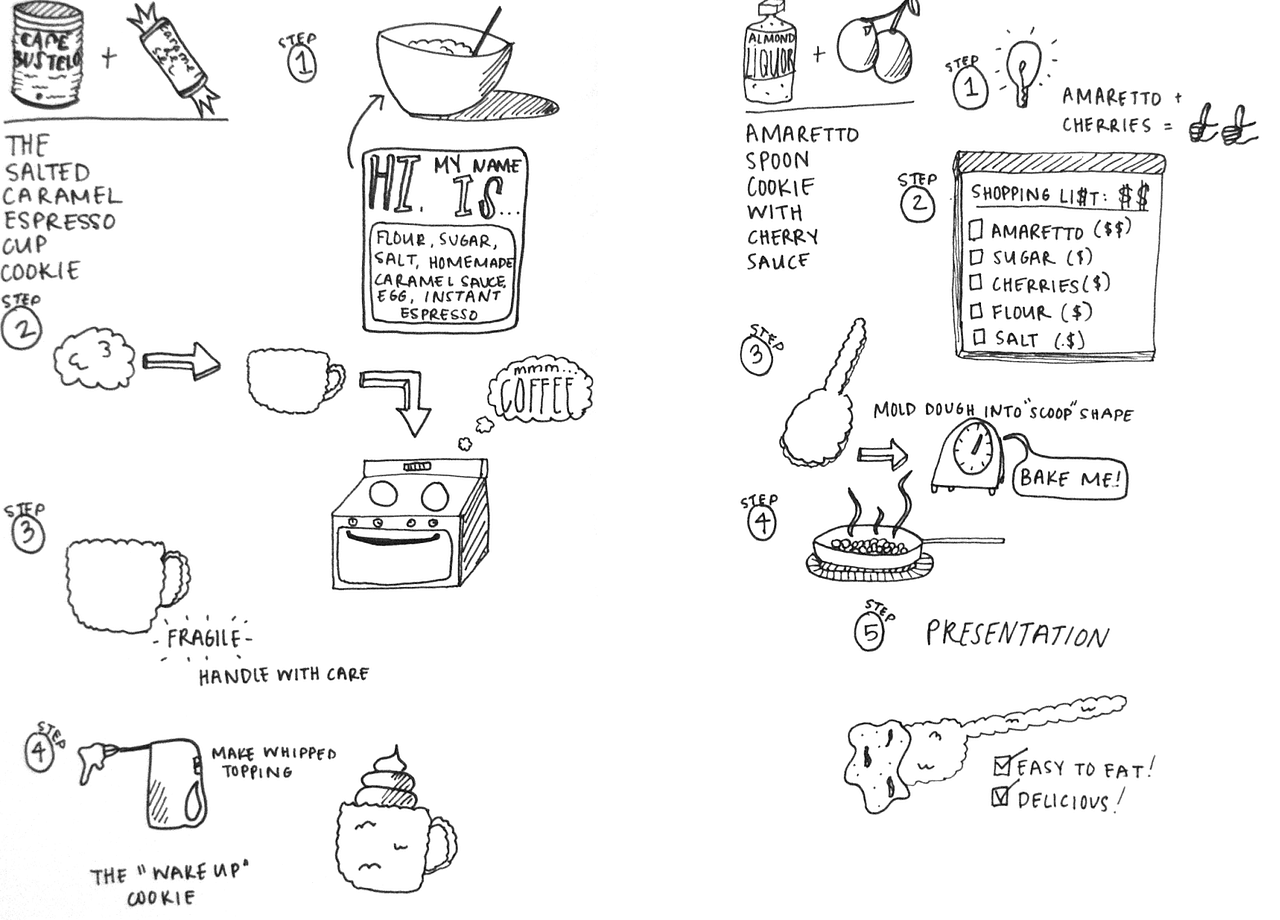 CAFE
BUSTELO
+
Caramel
de
Sel
THE
SALTED
CARAMEL
ESPRESSO
CUP
COOKIE
STEP
1
HI. MY NAME
IS...
FLOUR, SUGAR,
SALT, HOMEMADE
CARAMEL SAUCE,
EGG, INSTANT
ESPRESSO
STEP
2
mmm...
COFFEE
STEP
3
-FRAGILE-
HANDLE WITH CARE
STEP
4
MAKE WHIPPED
TOPPING
THE "WAKE UP"
COOKIE
ALMOND
LIQUOR
+
AMARETTO
SPOON
COOKIE
WITH
CHERRY
SAUCE
STEP
1
AMARETTO +
CHERRIES =
STEP
2
SHOPPING LI$T: $$
AMARETTO ($$)
SUGAR ($)
CHERRIES ($)
FLOUR ($)
SALT (.$)
STEP
3
MOLD DOUGH INTO "SCOOP" SHAPE
BAKE ME!
STEP
4
STEP
5
PRESENTATION
EASY TO EAT!
DELICIOUS!